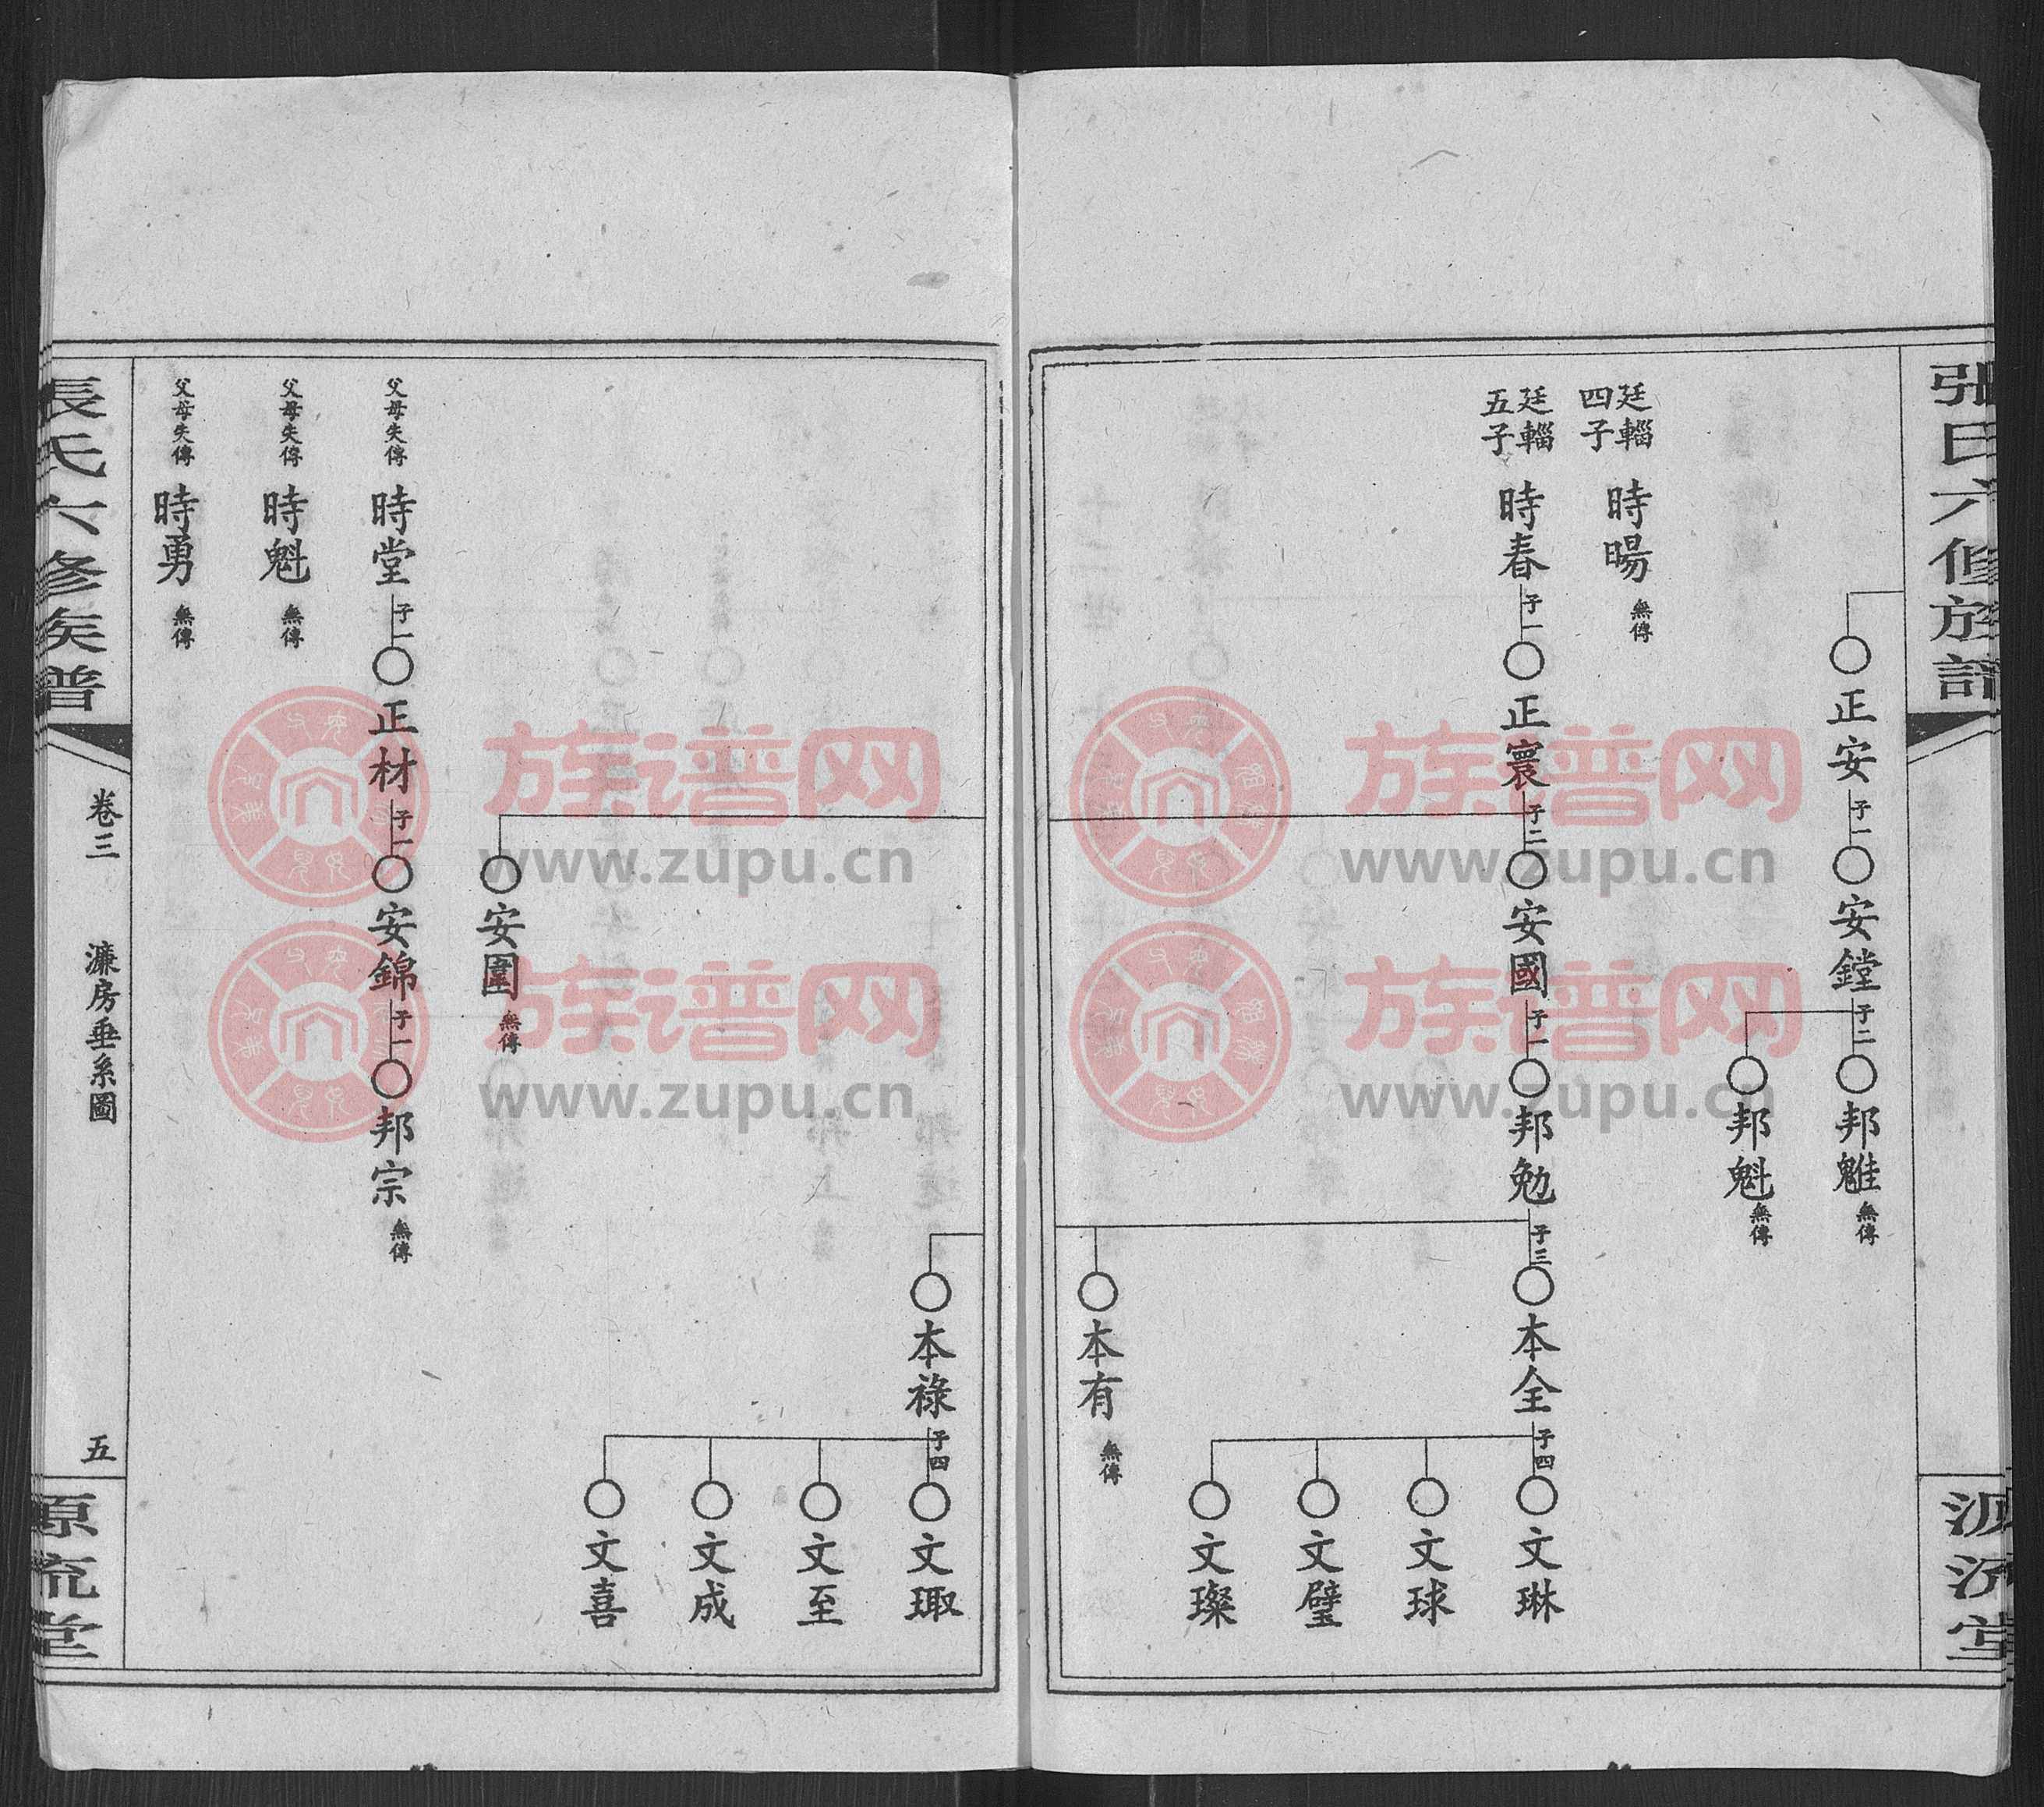 張氏六修族譜
源流堂
正安
子一
安鏜
子二
邦魋
無傳
邦魁
無傳
廷輜
四子
時暘
無傳
廷輜
五子
時春
子一
正寰
子二
安國
子一
邦勉
子三
本全
子四
文琳
文球
文璧
文璨
本有
無傳
本祿
子四
文珊
文至
文成
文喜
安圍
無傳
父母失傳
時堂
子一
正材
子一
安錦
子一
邦宗
無傳
父母失傳
時魁
無傳
父母失傳
時勇
無傳
張氏六修族譜
卷三
濂房垂系圖
五
源流堂
族谱网
www.zupu.cn
族谱网
www.zupu.cn
族谱网
www.zupu.cn
族谱网
www.zupu.cn